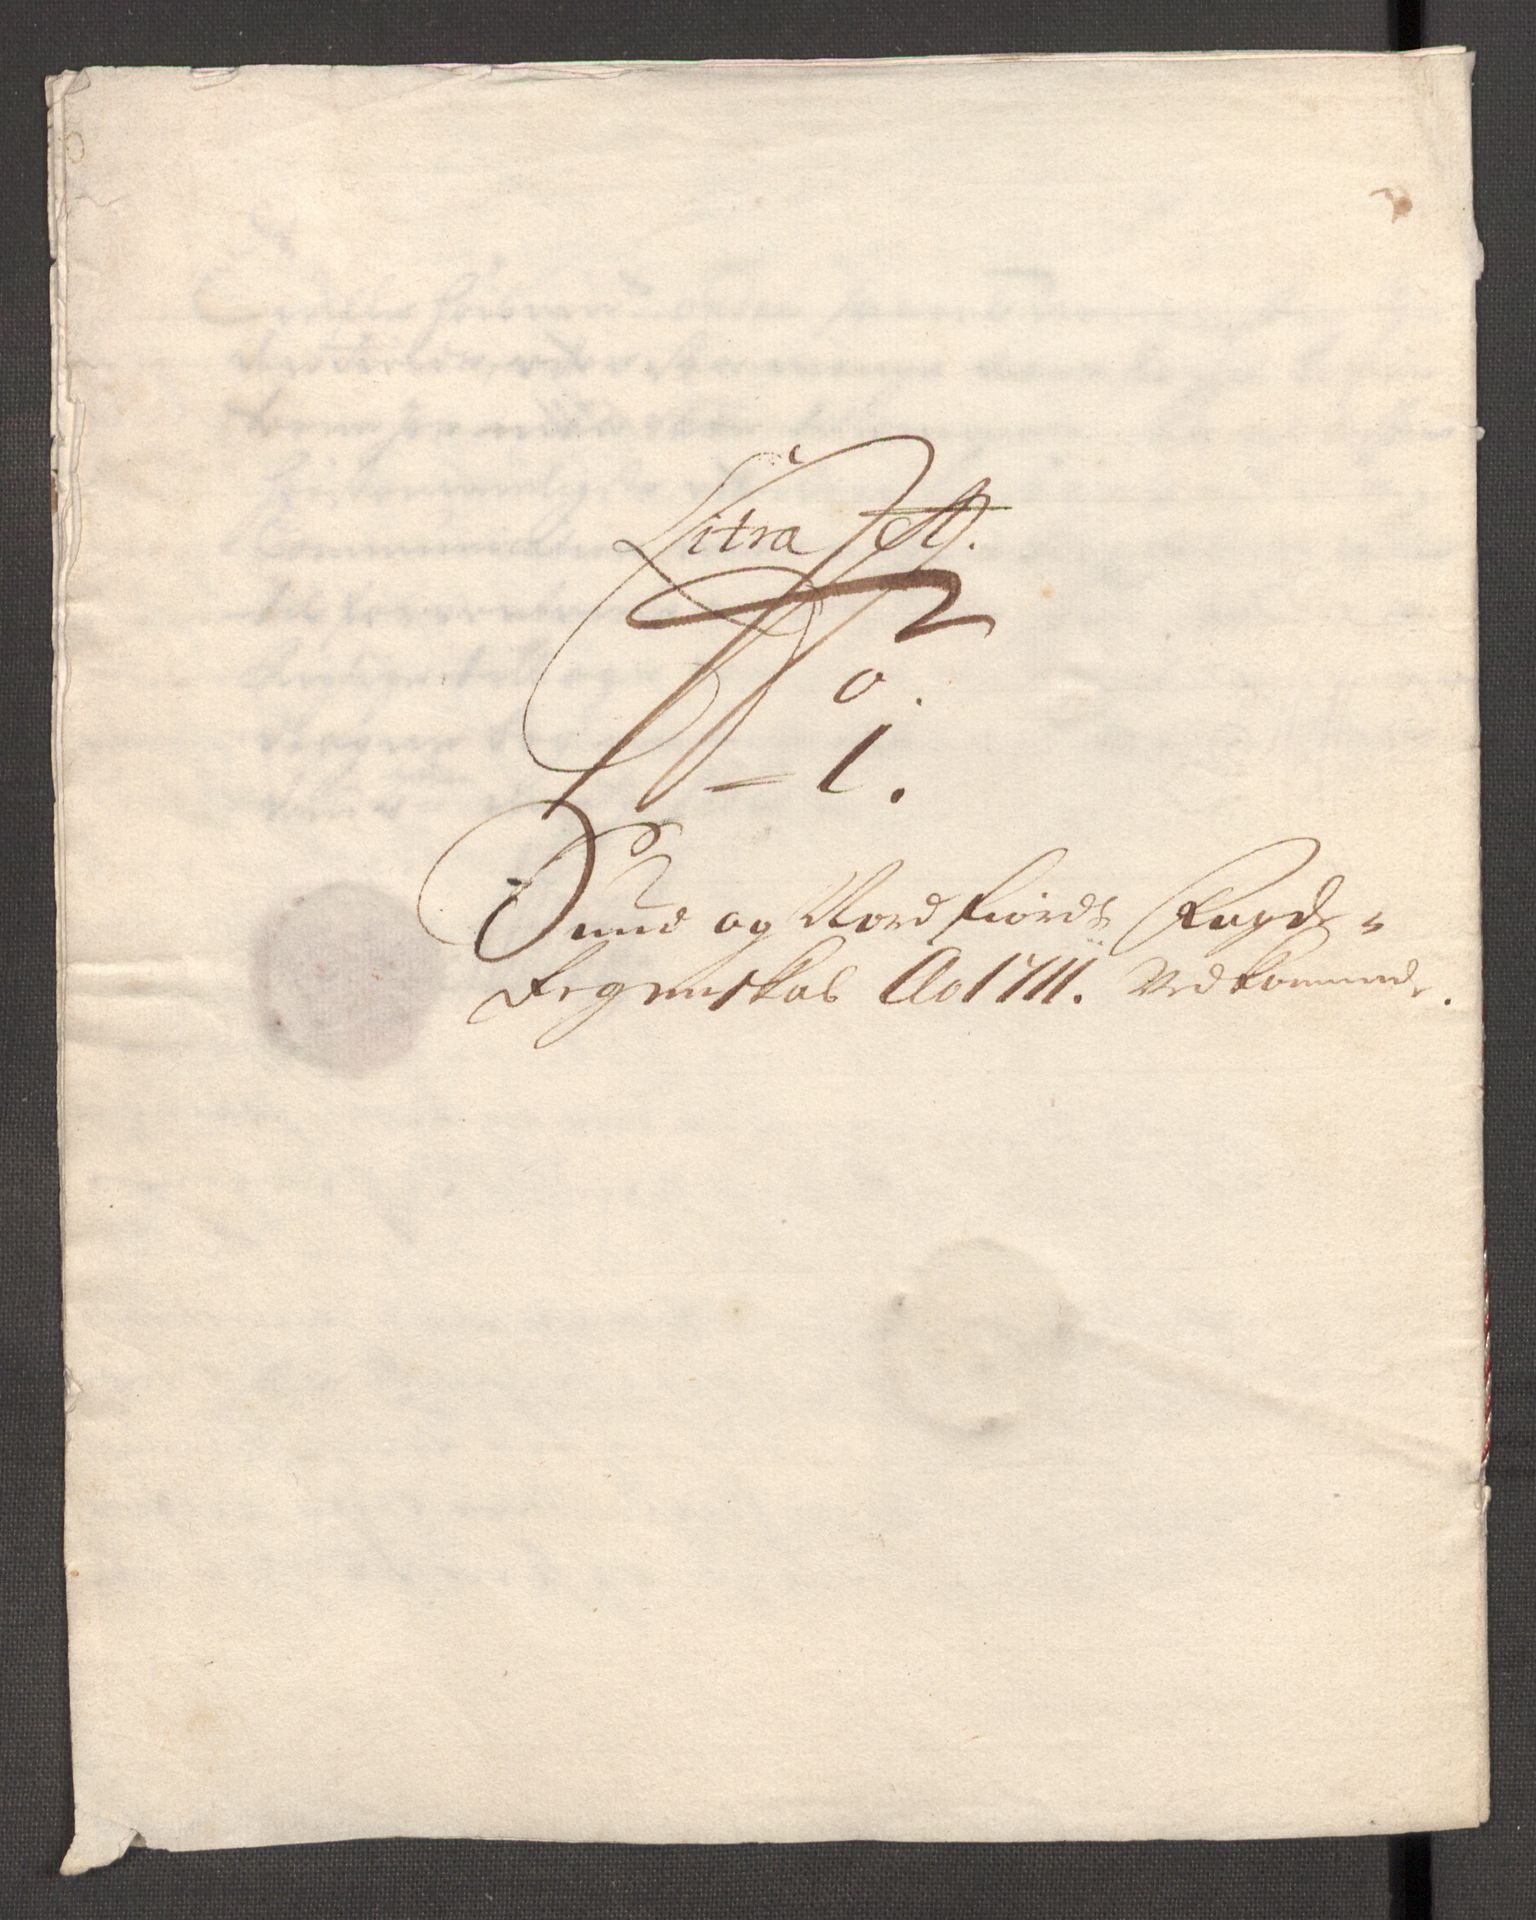 Litra A.
No.
1.
Sund og Nordfiords Fogde=
Regenskab Ao 1711. Vedkommende.